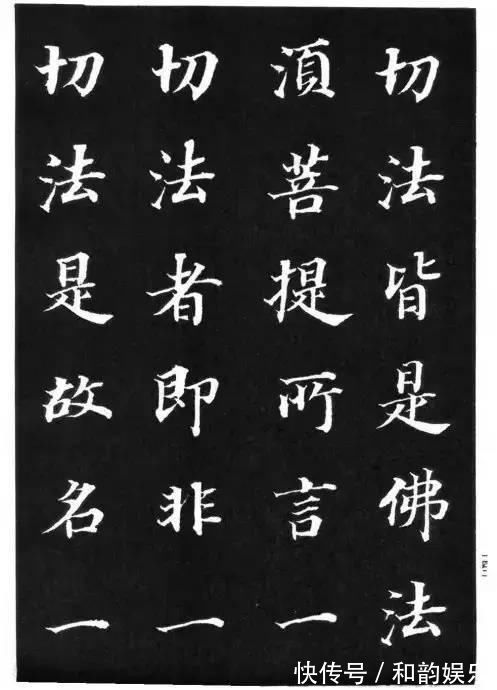 切法皆是佛法
須菩提所言一
切法者即非一
切法是故名一
快传号/和韵娱乐